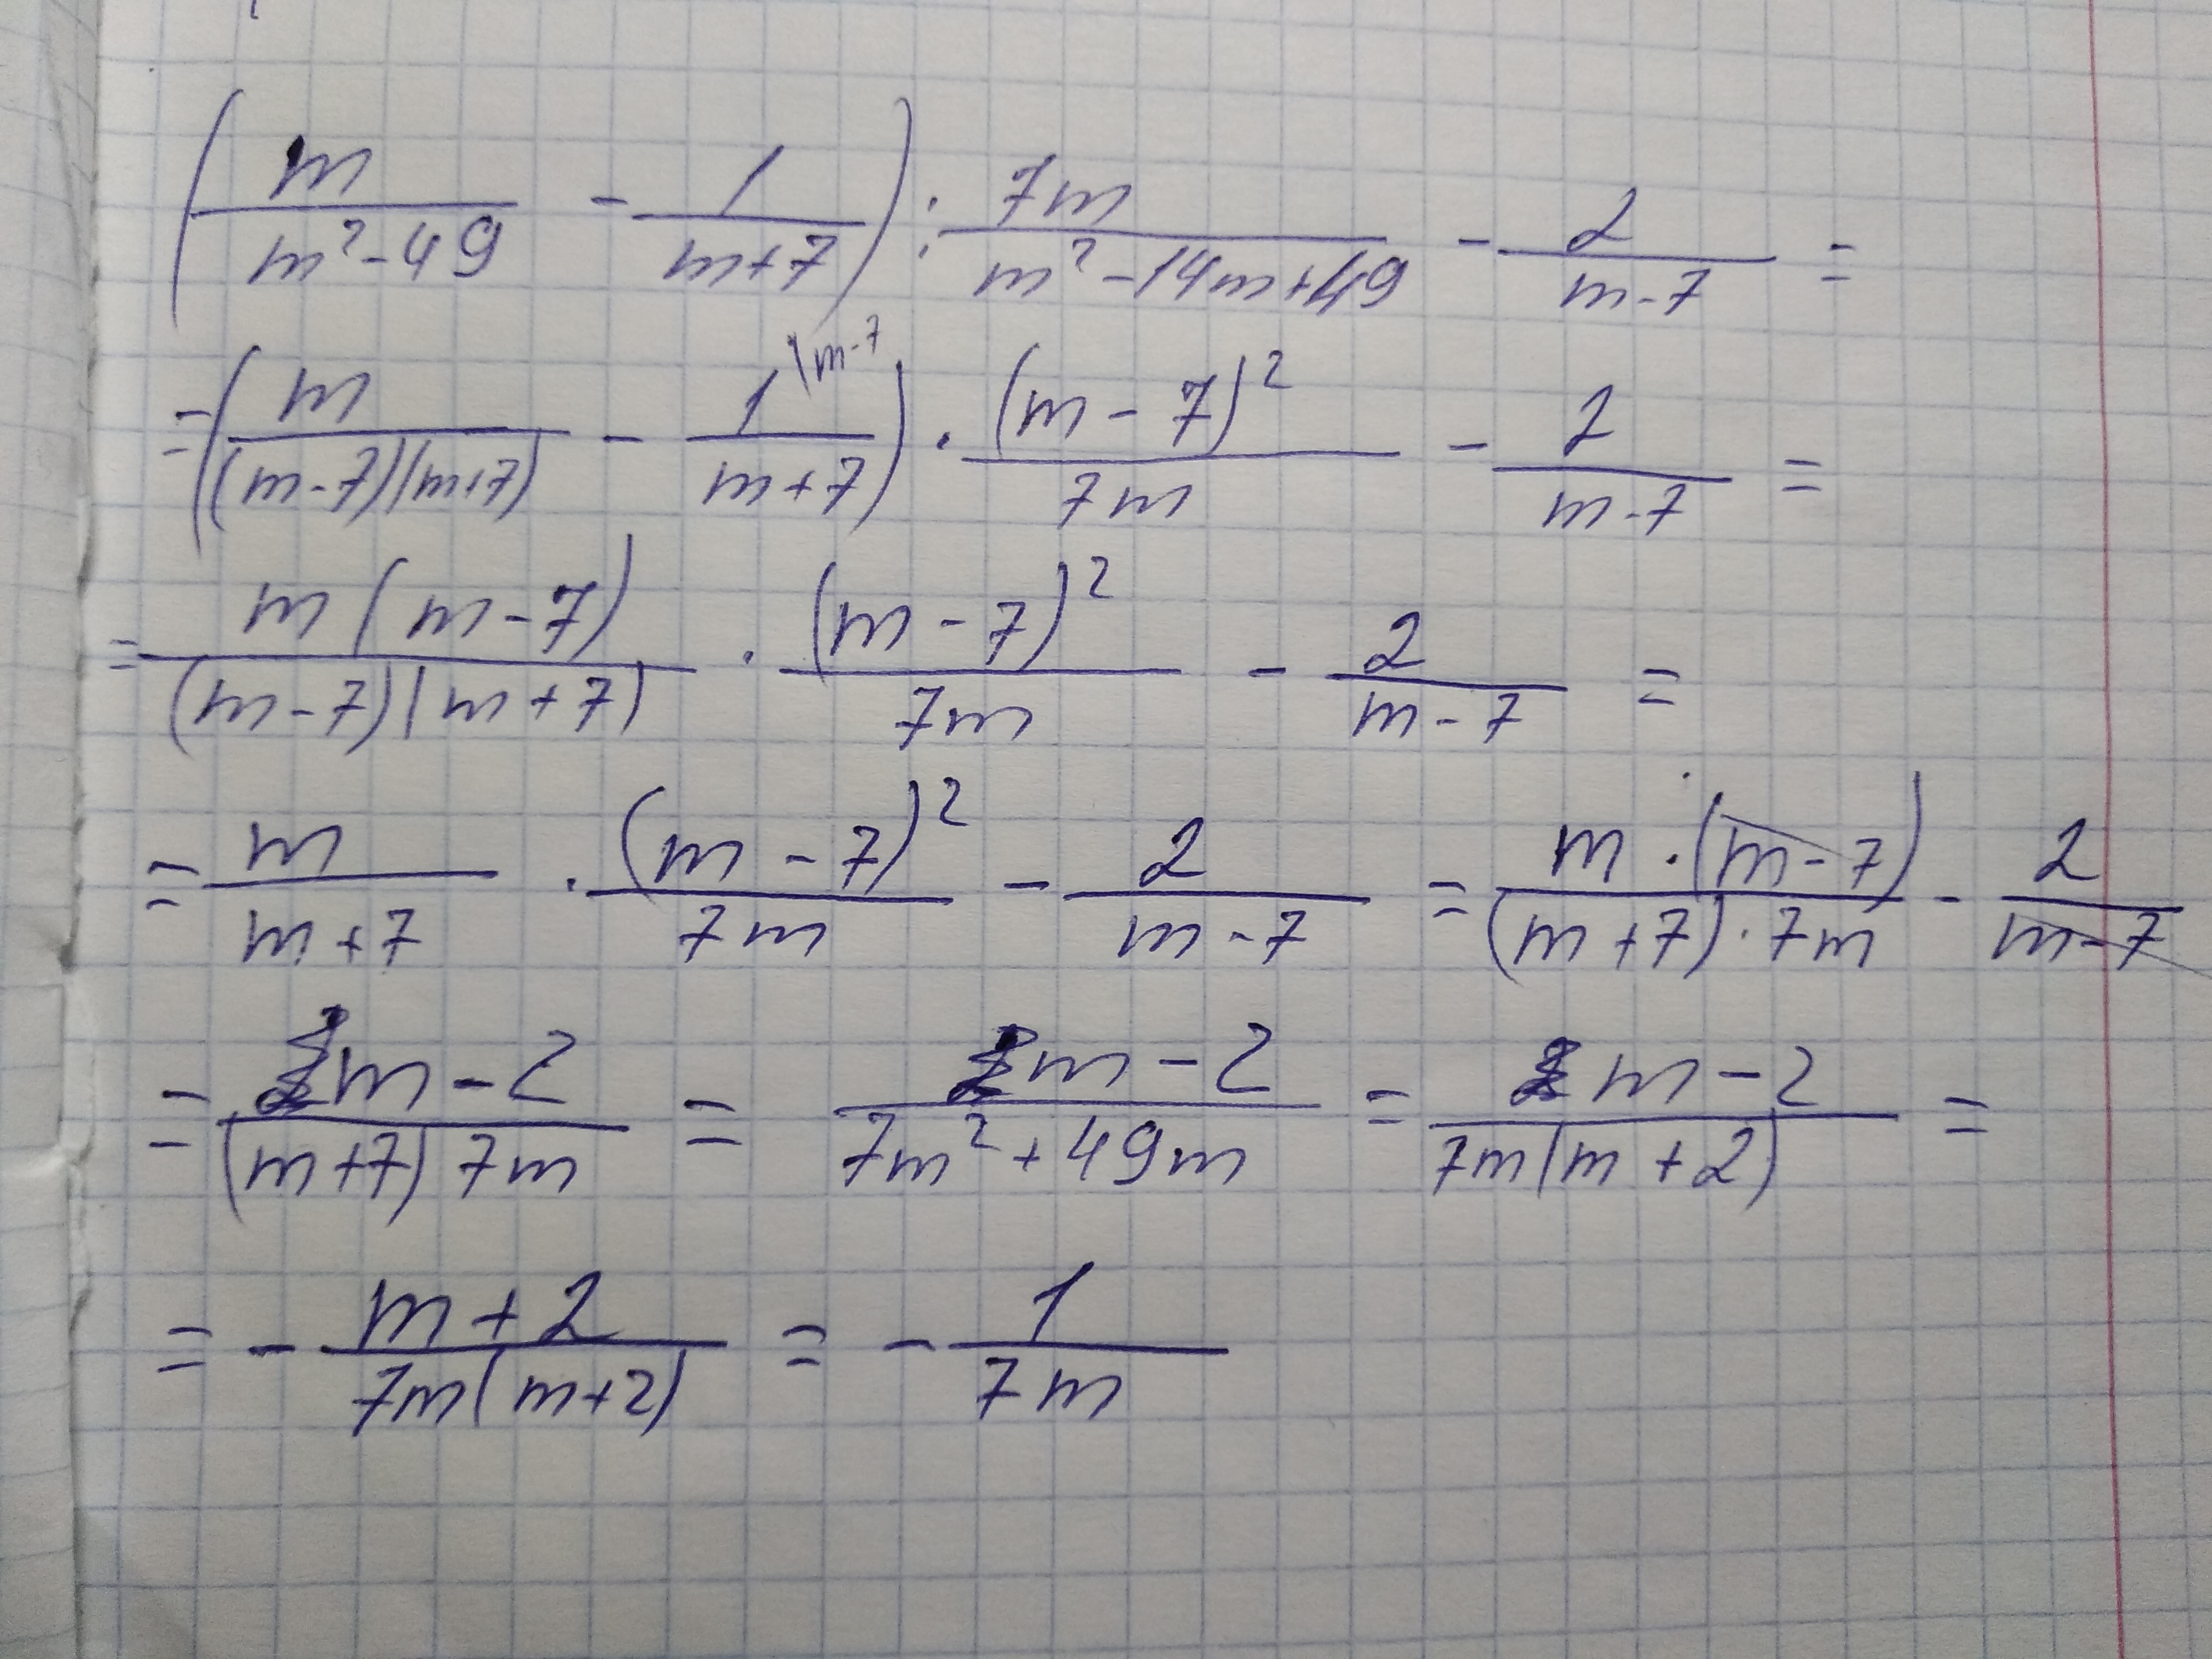 (m/(m²-49) - 1/(m+7)) : 7m/(m²-14m+49) - 2/(m-7) =
= (m/((m-7)(m+7)) - 1\m-7/(m+7)) · (m-7)²/7m - 2/(m-7) =
= m(m-7)/((m-7)(m+7)) · (m-7)²/7m - 2/(m-7) =
= m/(m+7) · (m-7)²/7m - 2/(m-7) = m·(m-7)/((m+7)·7m) - 2/(m-7)
= m-2/((m+7)7m) = m-2/(7m²+49m) = m-2/(7m(m+2)) =
= - m+2/(7m(m+2)) = - 1/7m